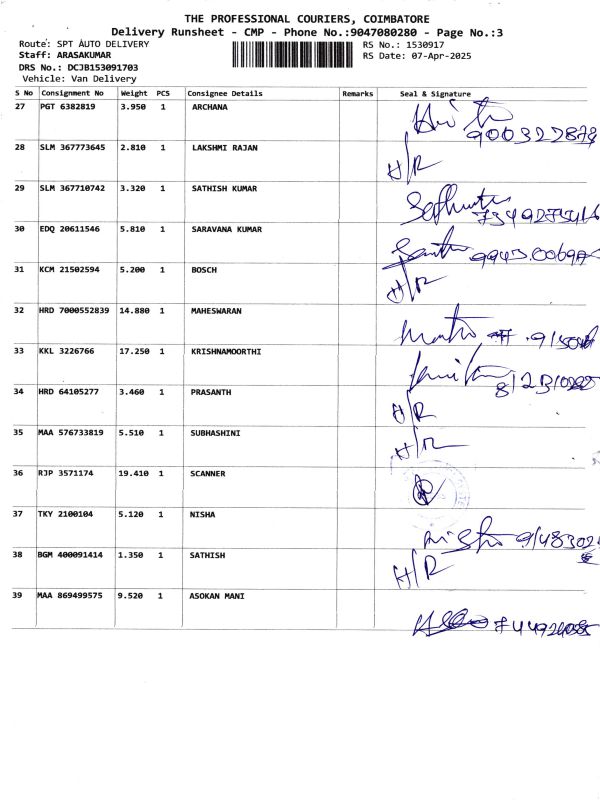 THE PROFESSIONAL COURIERS, COIMBATORE
Delivery Runsheet - CMP - Phone No.:9047080280 - Page No.:3
Route: SPT AUTO DELIVERY RS No.: 1530917
Staff: ARASAKUMAR RS Date: 07-Apr-2025
DRS No.: DCJB153091703
Vehicle: Van Delivery
S No Consignment No Weight PCS Consignee Details Remarks Seal & Signature
27 PGT 6382819 3.950 1 ARCHANA
28 SLM 367773645 2.810 1 LAKSHMI RAJAN H/R
29 SLM 367710742 3.320 1 SATHISH KUMAR
30 EDQ 20611546 5.810 1 SARAVANA KUMAR
31 KCM 21502594 5.200 1 BOSCH H/R
32 HRD 7000552839 14.880 1 MAHESWARAN
33 KKL 3226766 17.250 1 KRISHNAMOORTHI
34 HRD 64105277 3.460 1 PRASANTH H/R
35 MAA 576733819 5.510 1 SUBHASHINI H/R
36 RJP 3571174 19.410 1 SCANNER
37 TKY 2100104 5.120 1 NISHA
38 BGM 400091414 1.350 1 SATHISH H/R
39 MAA 869499575 9.520 1 ASOKAN MANI